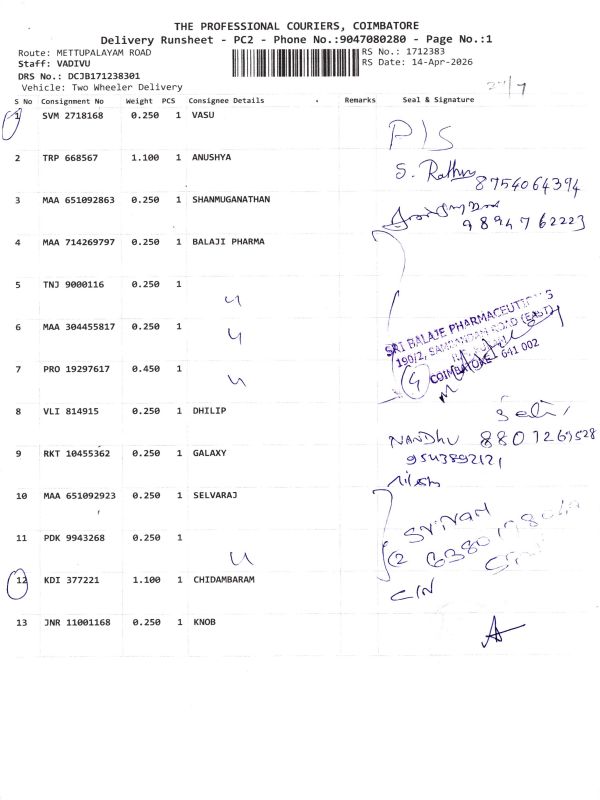 THE PROFESSIONAL COURIERS, COIMBATORE
Delivery Runsheet - PC2 - Phone No.:9047080280 - Page No.:1
Route: METTUPALAYAM ROAD RS No.: 1712383
Staff: VADIVU RS Date: 14-Apr-2026
DRS No.: DCJB171238301
Vehicle: Two Wheeler Delivery
S No Consignment No Weight PCS Consignee Details Remarks Seal & Signature
1 SVM 2718168 0.250 1 VASU P/S
2 TRP 668567 1.100 1 ANUSHYA S. 8754064394
3 MAA 651092863 0.250 1 SHANMUGANATHAN 9894762223
4 MAA 714269797 0.250 1 BALAJI PHARMA
5 TNJ 9000116 0.250 1
6 MAA 304455817 0.250 1
SRI BALAJE PHARMACEUTICALS
190/2, SAMBANDAM ROAD (EAST)
COIMBATORE - 641 002
7 PRO 19297617 0.450 1
8 VLI 814915 0.250 1 DHILIP
NANDHU
9 RKT 10455362 0.250 1 GALAXY 9543892121
10 MAA 651092923 0.250 1 SELVARAJ
11 PDK 9943268 0.250 1
12 KDI 377221 1.100 1 CHIDAMBARAM
13 JNR 11001168 0.250 1 KNOB